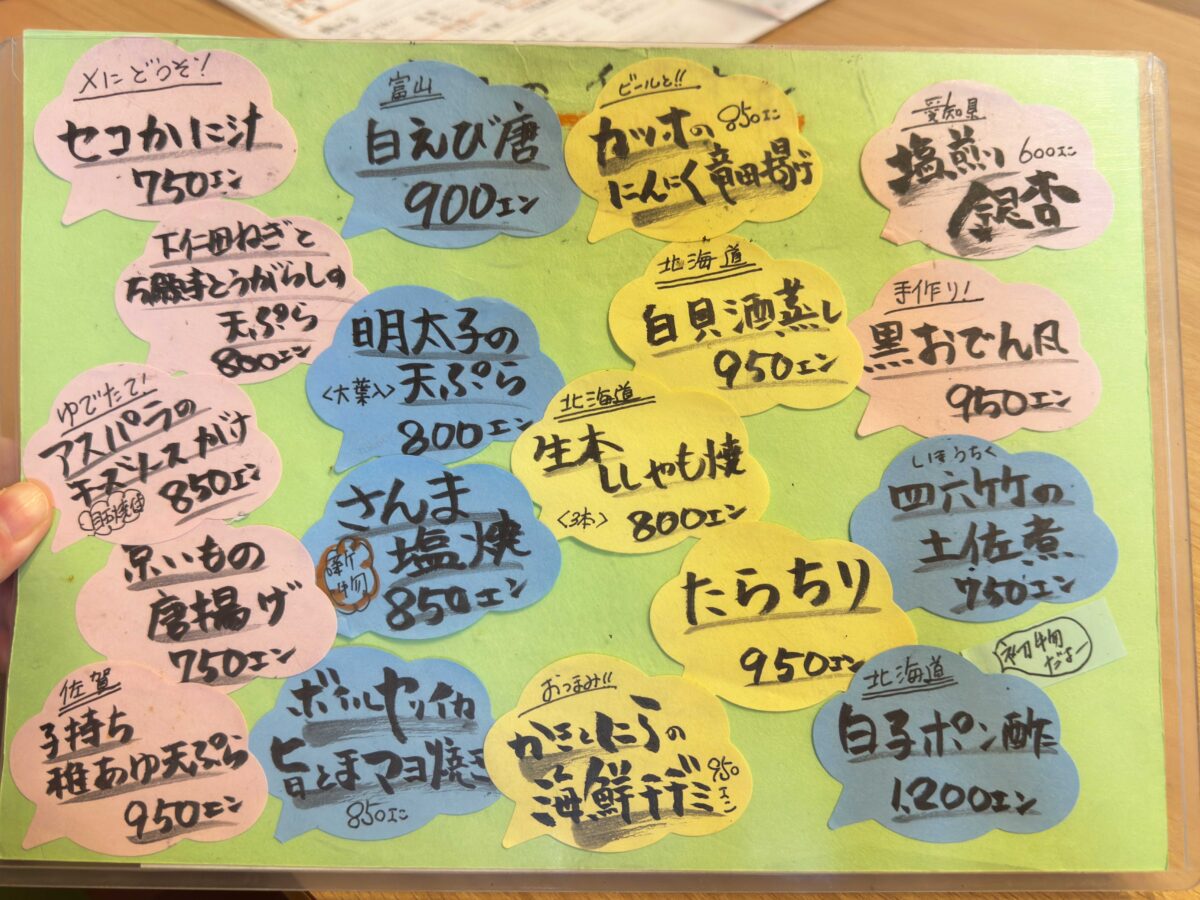 〆にどうぞ!
セコかに汁
750エン
富山
白えび唐
900エン
ビールと!!
カツオの
850エン
にんにく竜田揚げ
愛知県
塩煎り
600エン
銀杏
下仁田ねぎと
万願寺とうがらしの
天ぷら
800エン
明太子の
<大葉入>天ぷら
800エン
北海道
白貝酒蒸し
950エン
手作り!
黒おでん風
950エン
ゆでたて!
アスパラの
チーズソースがけ
850エン
北海道
生本
ししゃも焼
<3本>800エン
さんま
塩焼
新物
850エン
しほうちく
四六竹の
土佐煮
750エン
京いもの
唐揚げ
750エン
たらちり
950エン
初物
だよー
佐賀
子持ち
稚あゆ天ぷら
950エン
ボイルヤリイカ
旨とまマヨ焼き
850エン
おつまみ!!
かきとにらの
海鮮チヂミ
950エン
北海道
白子ポン酢
1,200エン